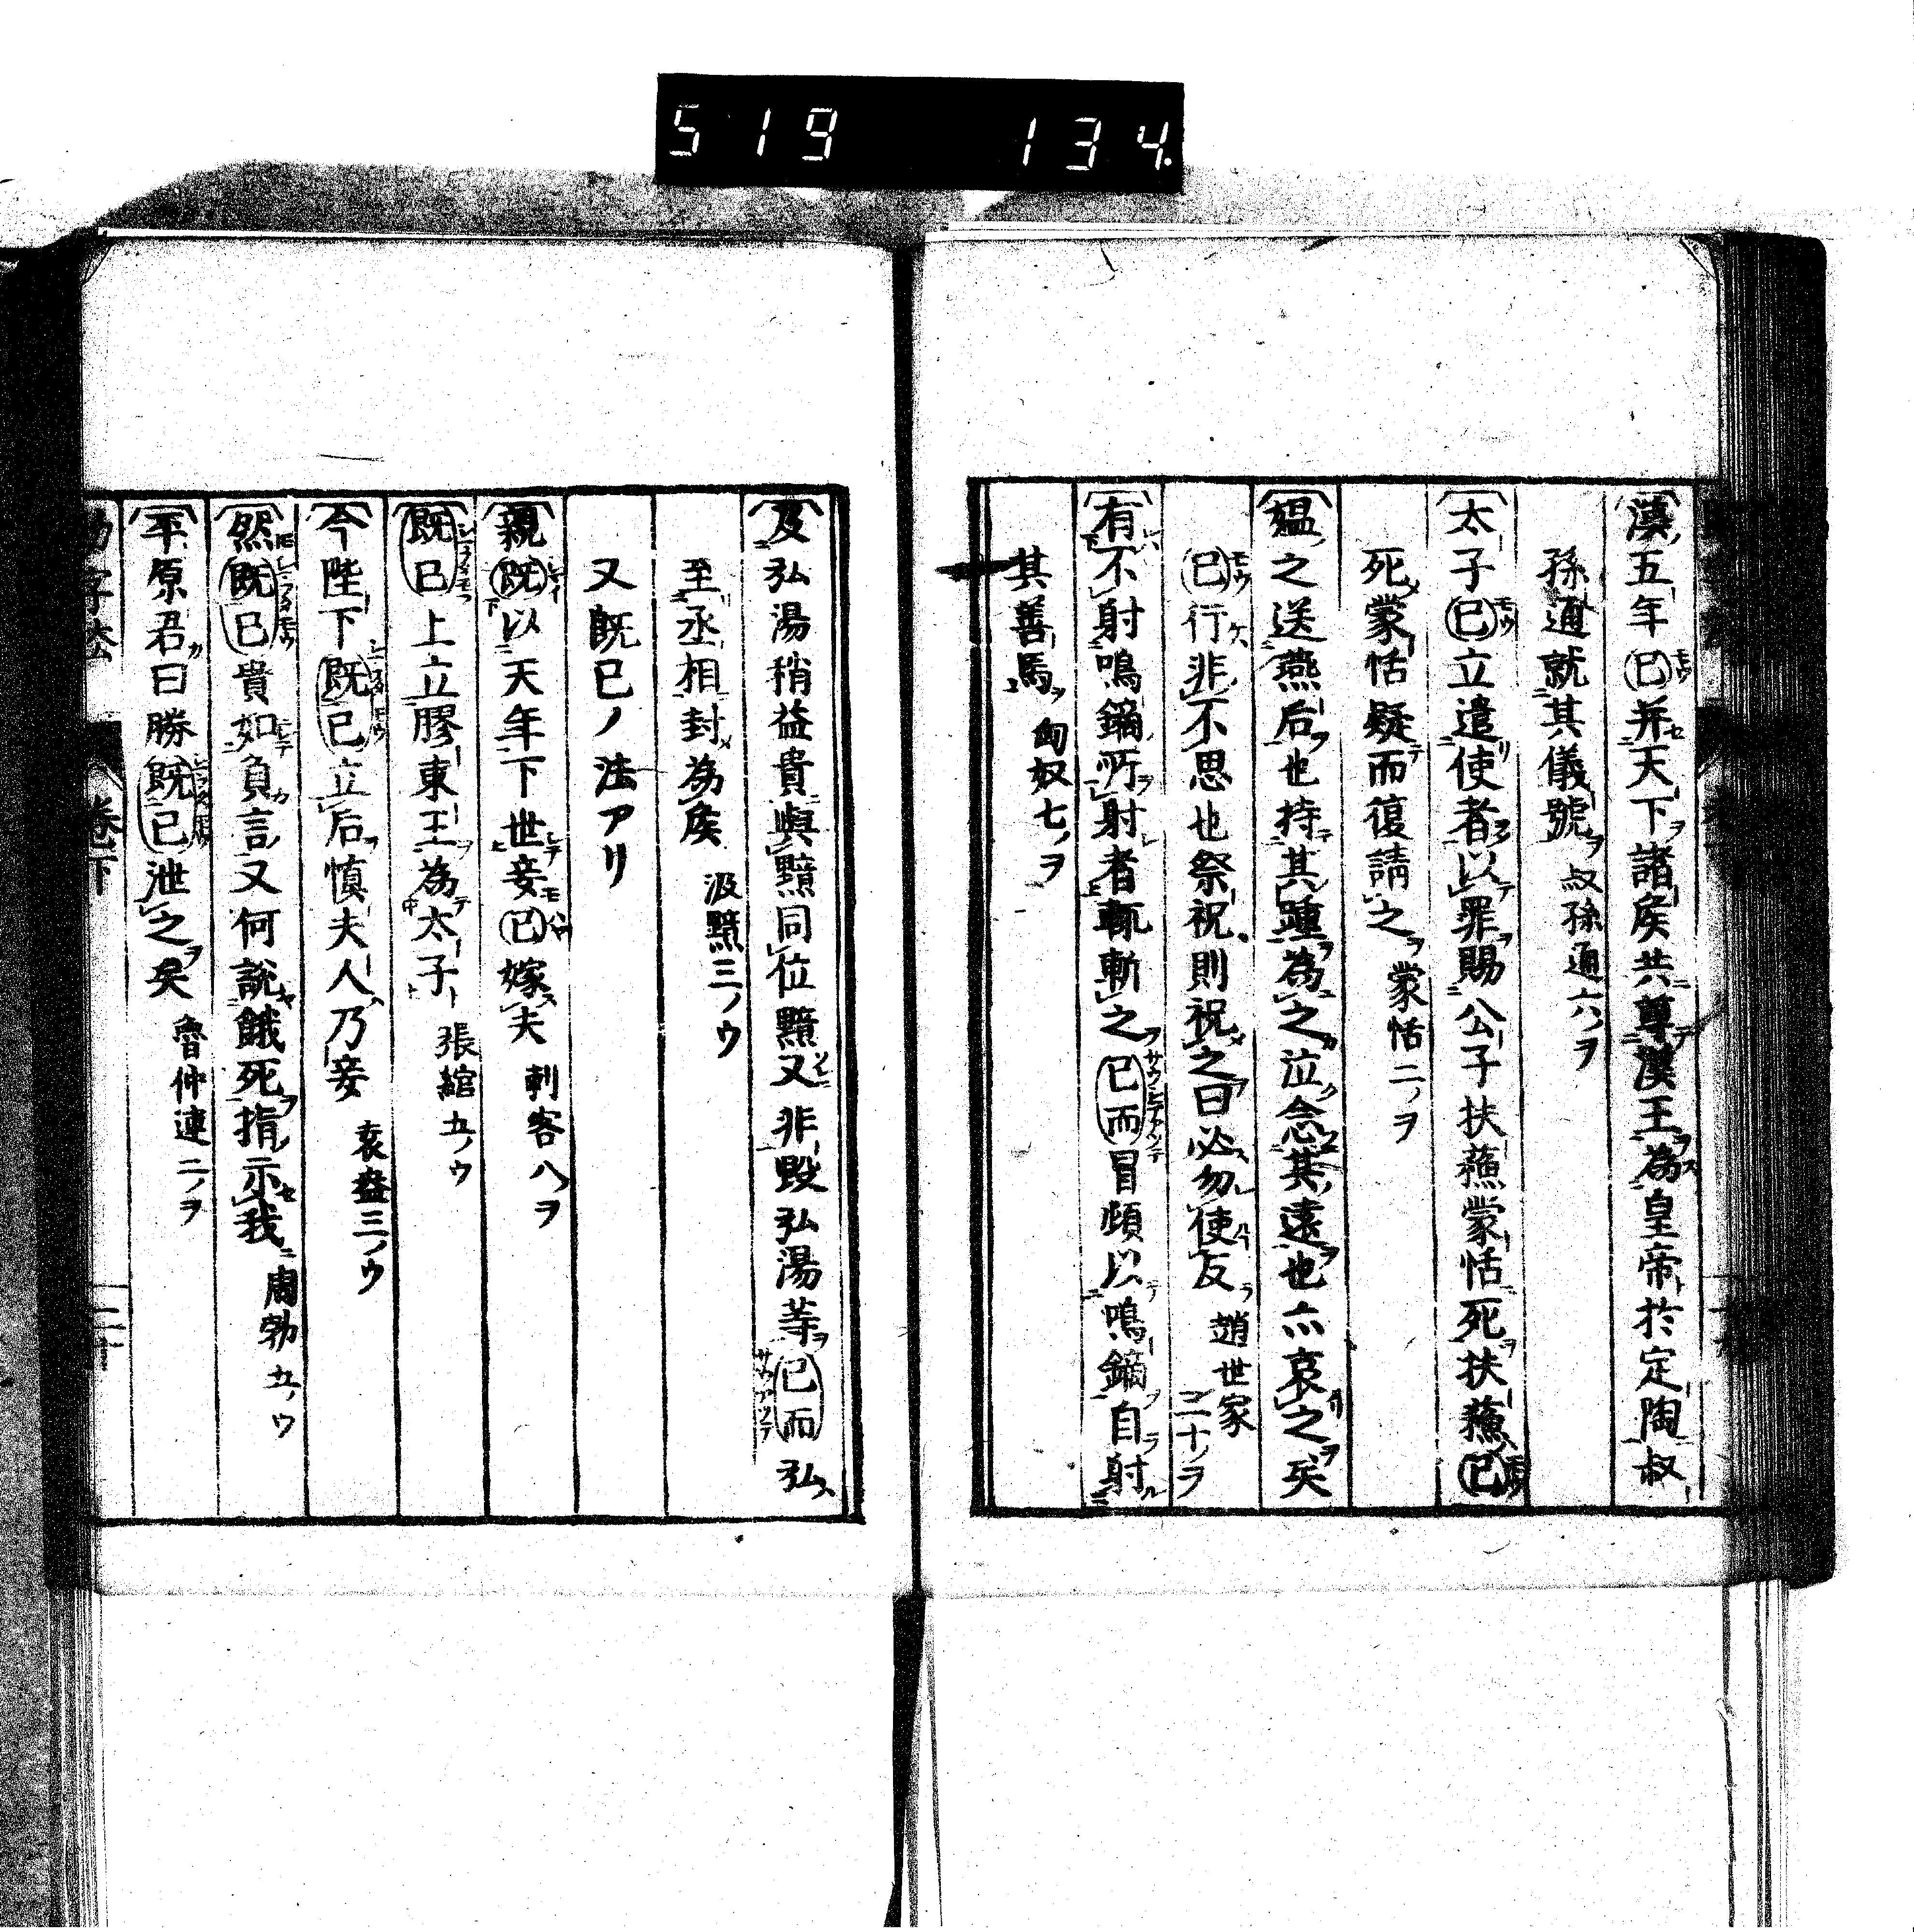 519 134
漢五年已并天下諸矦共尊漢王為皇帝於定陶叔
孫通就其儀號 叔孫通六ノヲ
太子已立遣使者以罪賜公子扶蘓蒙恬死扶蘓已
死蒙恬疑而復請之 蒙恬二ノヲ
媼之送燕后也持其踵為之泣念其遠也亦哀之矣
已行非不思也祭祝則祝之曰必勿使反 趙世家二十ノヲ
有不射鳴鏑所射者輒斬之已而冒頓以鳴鏑自射
其善馬 匈奴七ノヲ
及弘湯稍益貴與黯同位黯又非毀弘湯等已而弘
至丞相封為矦 汲黯三ノウ
又既已ノ法アリ
親既以天年下世妾已嫁夫 刺客八ノヲ
既已上立膠東王為太子 張綰五ノウ
今陛下既已立后慎夫人乃妾 袁盎三ノウ
然既已貴如負言又何說餓死指示我 周勃五ノウ
平原君曰勝既已泄之矣 魯仲連二ノヲ
卷下 二十